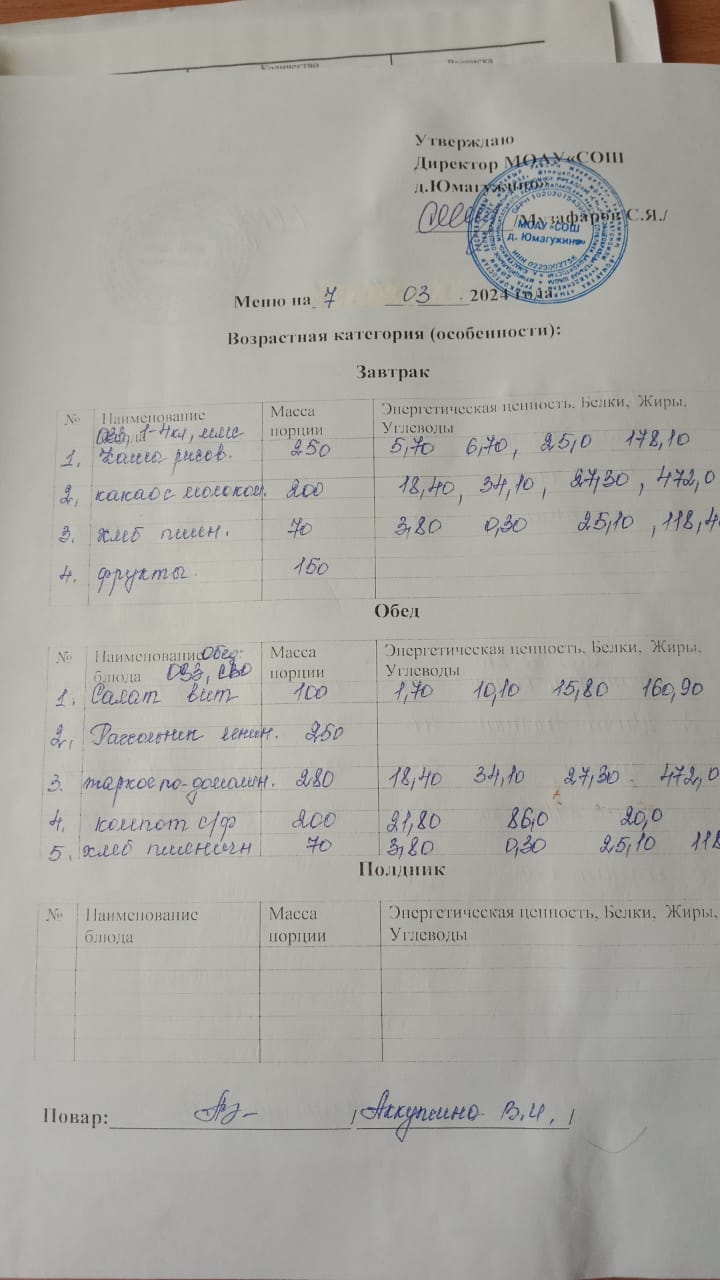 Количество
Утверждаю
Директор МОАУ«СОШ
д.Юмагужино»
/Музафаров С.Я./
МОАУ «СОШ
д. Юмагужино»
ИНН 0223002756
Меню на 7 03 .2024 года
Возрастная категория (особенности):
Завтрак
№ Наименование блюда Масса порции Энергетическая ценность, Белки, Жиры, Углеводы
ОВЗ, 1-4кл,
1. Каша рисов. 250 5,70 6,70, 25,0 178,10
2, какао с молоком. 200 18,40, 34,10, 27,30, 472,0
3. хлеб пшен. 70 3,80 0,30 25,10, 118,4
4. фрукты. 150
Обед
№ Наименование блюда Масса порции Энергетическая ценность, Белки, Жиры, Углеводы
Обед:
ОВЗ, СВО
1. Салат вит 100 1,70 10,10 15,80 160,90
2, Рассольник ленин. 250
3. жаркое по-домашн. 280 18,40 34,10 27,30 472,0
4. компот с/ф 200 21,80 86,0 20,0
5. хлеб пшеничн 70 3,80 0,30 25,10 118
Полдник
№ Наименование блюда Масса порции Энергетическая ценность, Белки, Жиры, Углеводы
Повар: / В.И. /